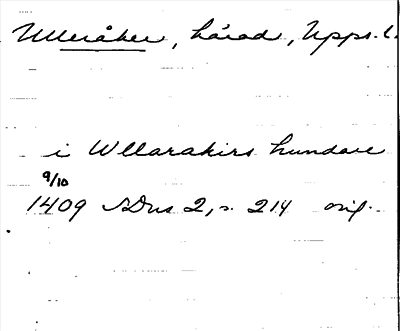 Ulleråker, härad, Upps. l.
i Wllarakirs hundare
9/10
1409 SDns 2, s. 214 orig.